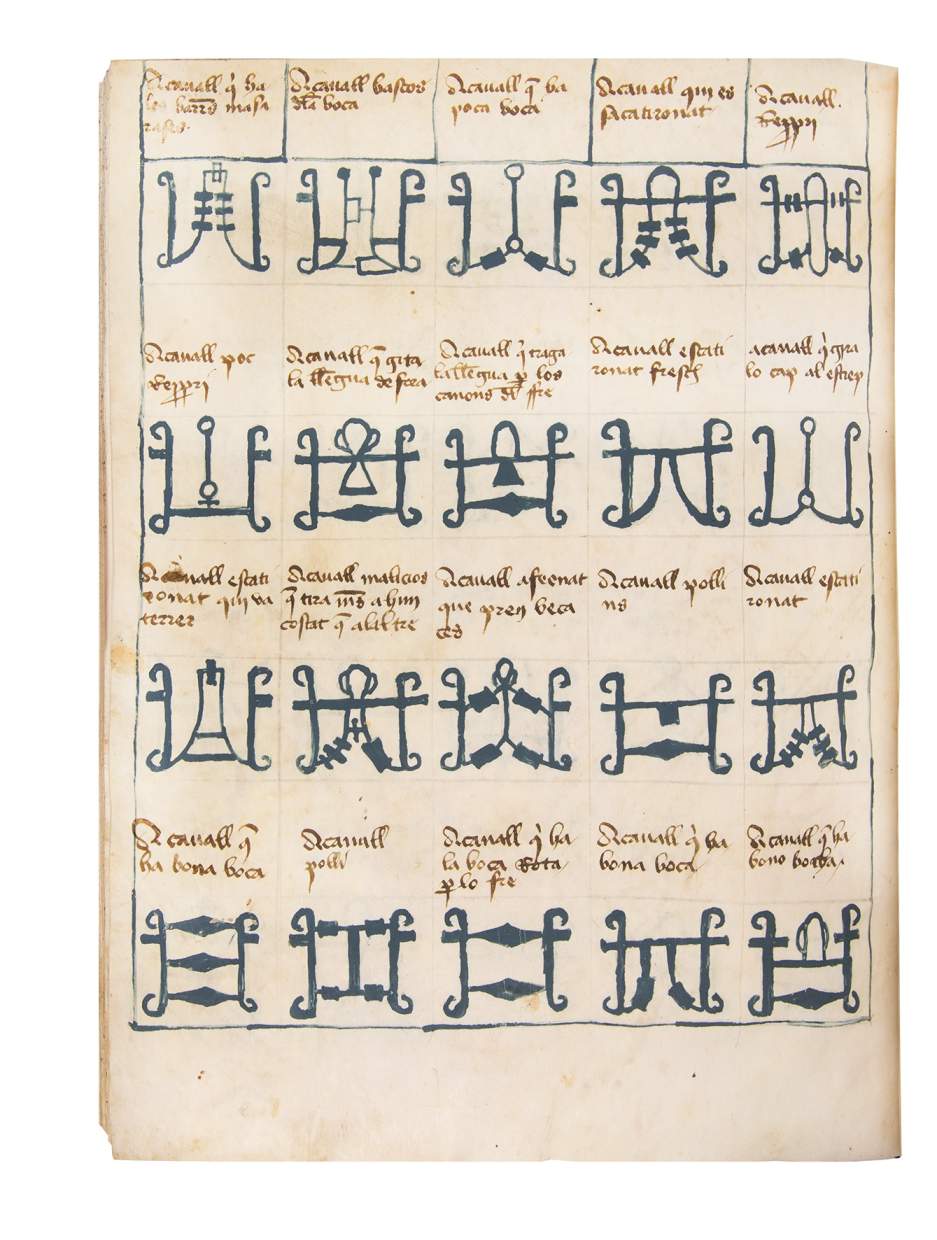 A cavall q̇ ha
les barrs̄ massa
rases.
A cavall bascos
dla voca
A cavall q̄ ha
poca voca
A cavall qui es
scatironat
A cavall.
reppri
A cavall poc
reppri
A cavall q̄ gita
la llēgua de fora
A cavall q̇ traga
la llēgua p̱ los
canons dl̄ ffre
A cavall escati
ronat fresch
a cavall q̇ gira
lo cap al estrep
A cavall escati
ronat qui va
terrer
A cavall malicios
q̄ tira mēs a hun
costat q̄ al altre
A cavall afrenat
que pren beca
ces
A cavall polli
ns
A cavall escati
ronat
A cavall q̄
ha bona voca
A cavall
polli
A cavall q̇ ha
la voca Rota
p̱ lo fre
A cavall q̇ ha
bona voca
A cavall q̄ ha
bono bocha